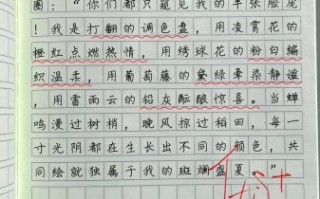 圈："你们都只窥见我的半张脸庞
！我是打翻的调色盘，用凌霄花的
橙红点燃热情，用绣球花的粉白编
织温柔，用葡萄藤的黛绿晕染静谧
，用雷雨云的铅灰酝酿惊喜。当蝉
鸣漫过树梢，晚风掠过稻田，每一
寸光阴都在生长出不同的颜色，共
同绘就独属于我的斑斓盛夏。"